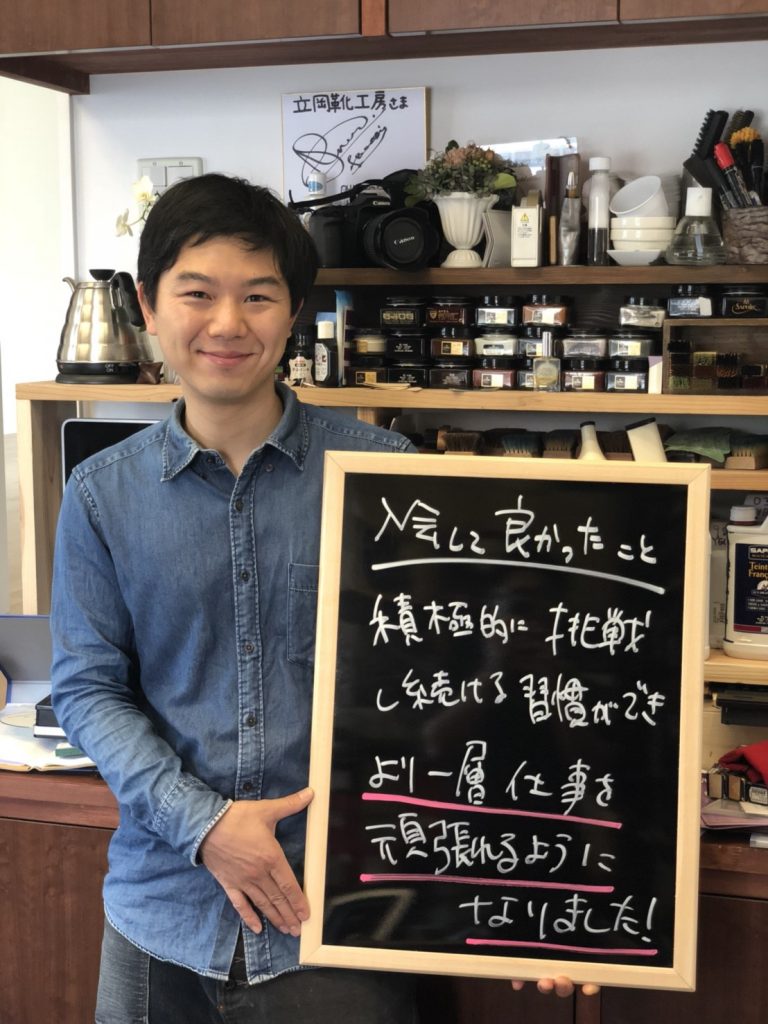 立岡靴工房さま
Canon
Canon
SAPHIR
入会して良かったこと
積極的に挑戦
し続ける習慣ができ
より一層仕事を
頑張れるように
なりました!
SAP
Teint
França